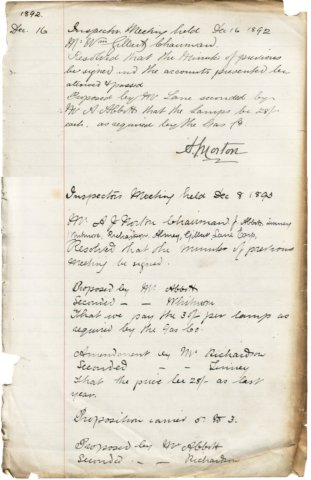 1892.
Dec. 16 Inspectors Meeting held Dec 16 1892
Mr Wm Gilbert Chairman.
Resolved that the Minutes of previous
be signed and the accounts presented be
allowed & passed
Proposed by Mr Lane seconded by
Mr A Abbott that the Lamps be 28/-
each. as required by the Gas Co
A J Norton
Inspectors Meeting held Dec 8 1893
Mr A J Norton Chairman & Abbott, Linney
Whitmore, Richardson, Gilbert Lane
Resolved that the minutes of previous
Meeting be signed.
Proposed by Mr Abbott
Seconded - - Whitmore
That we pay the 30/- per lamp as
required by the Gas Co.
Amendment by Mr Richardson
Seconded - - Linney
That the price be 28/- as last
year.
Proposition carried 5 to 3.
Proposed by Mr Abbott
Seconded - - Richardson